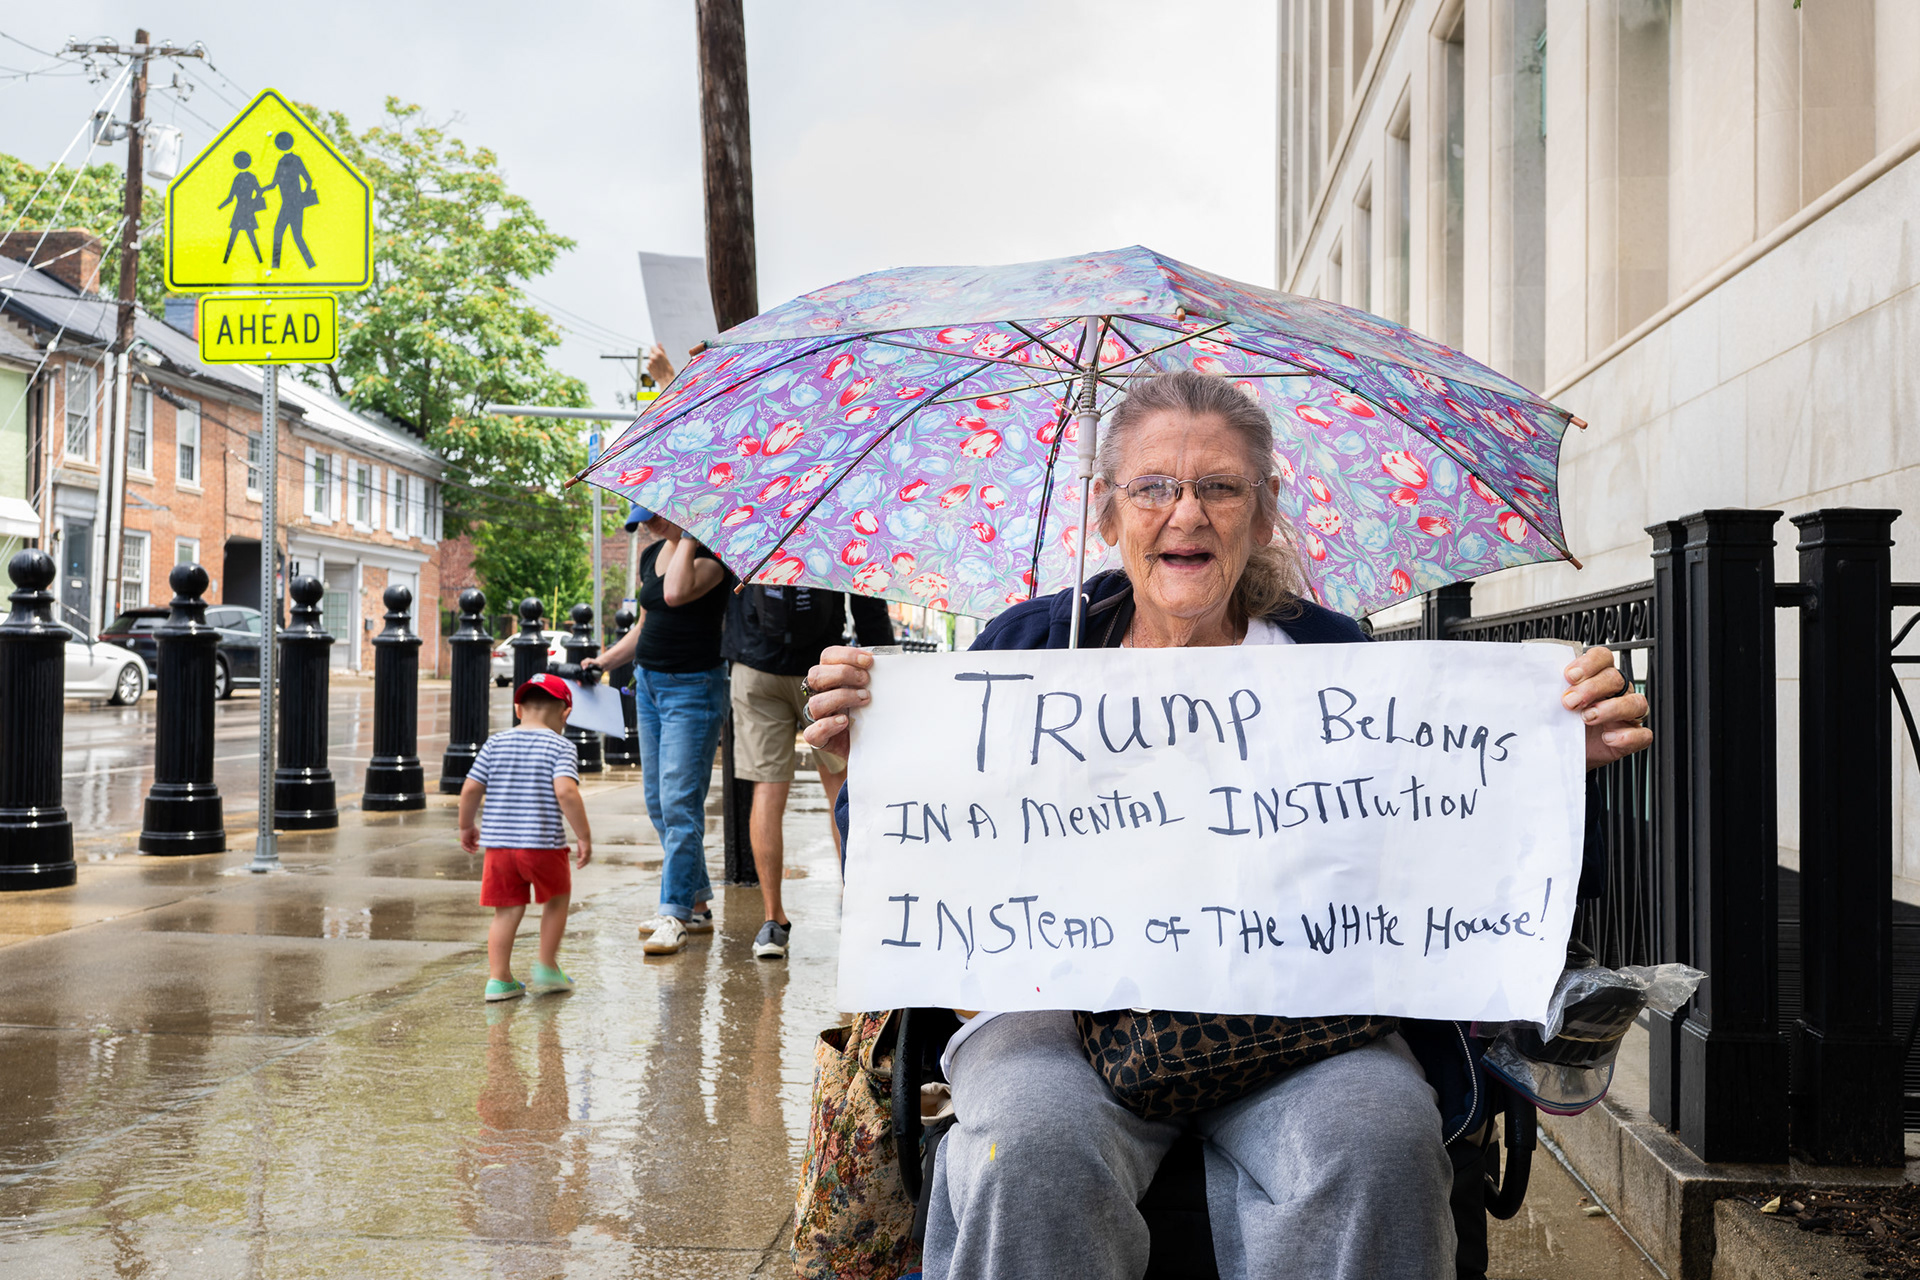 AHEAD
TRUMP BELONGS
IN A MENTAL INSTITUTION
INSTEAD OF THE WHITE HOUSE!